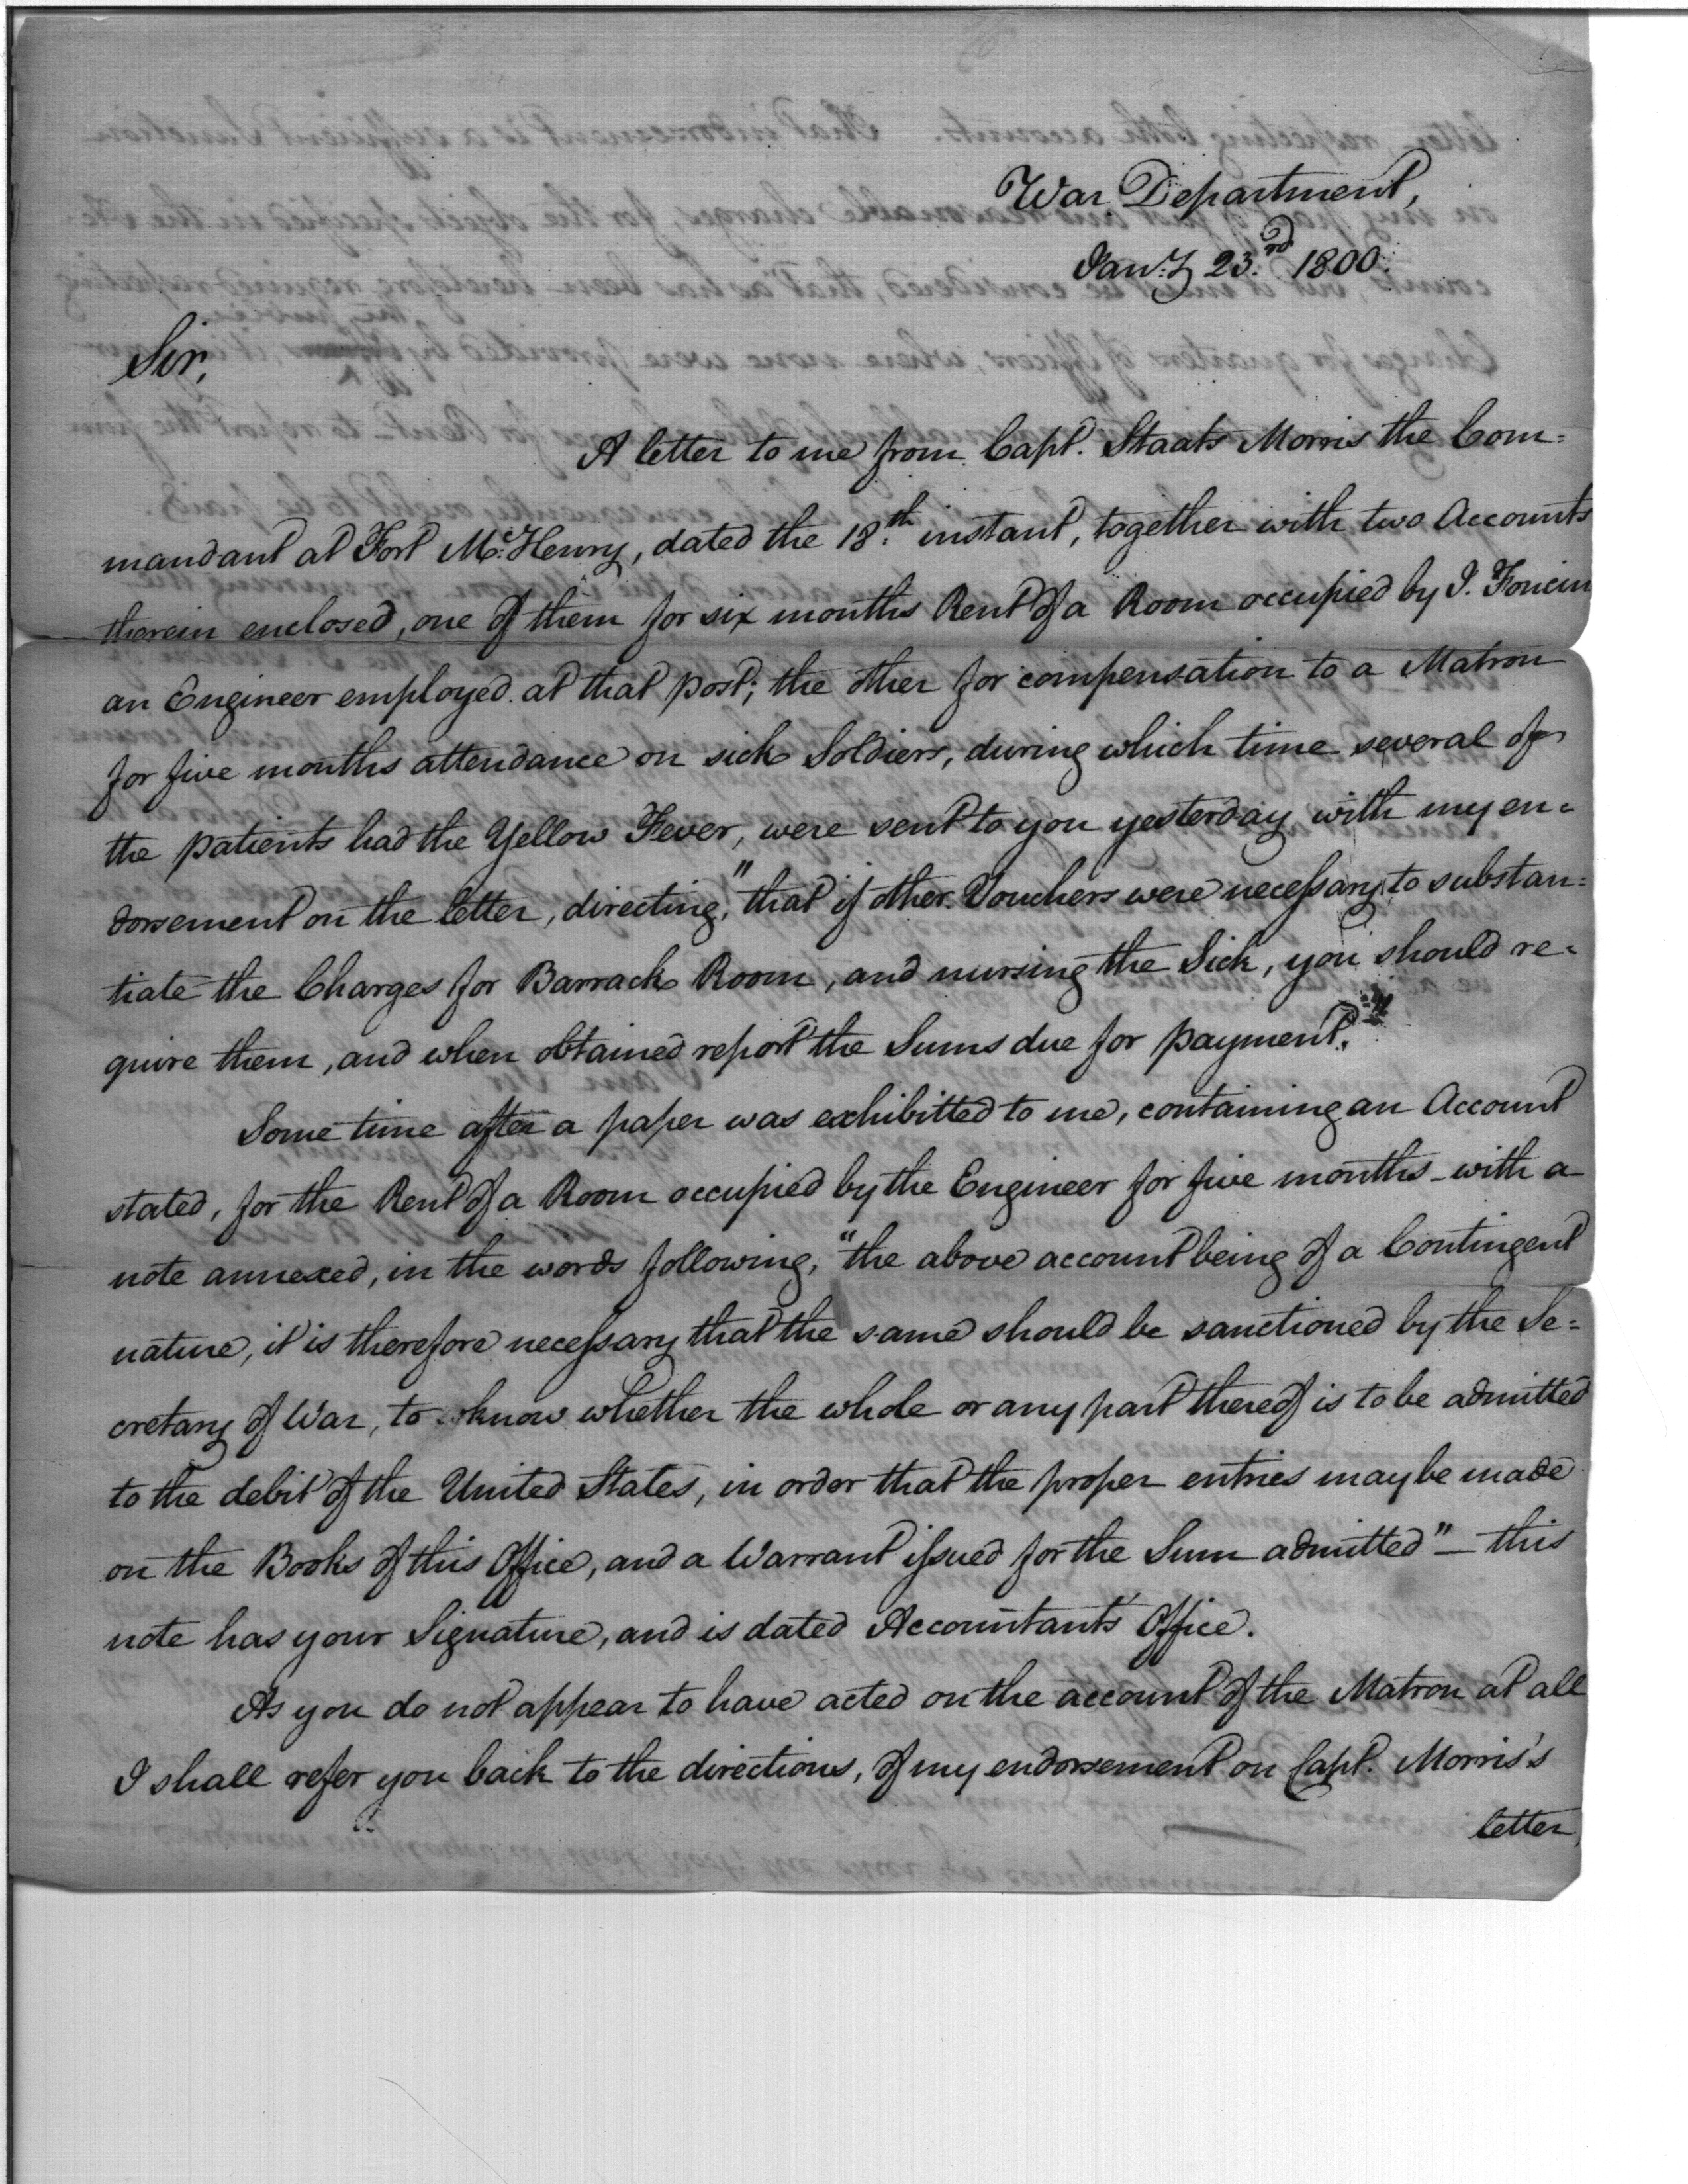 War Department,
Jan.y 23.rd 1800.
Sir,
A letter to me from Capt. Staats Morris the Com=
mandant at Fort Mc.Henry, dated the 18.th instant, together with two Accounts
therein enclosed, one of them for six months Rent of a Room occupied by J. Foncin
an Engineer employed at that post; the other for compensation to a Matron
for five months attendance on sick Soldiers, during which time several of
the patients had the Yellow Fever, were sent to you yesterday with my en=
dorsement on the letter, directing, "that if other Vouchers were necessary to substan=
tiate the Charges for Barrack Room, and nursing the Sick, you should re=
quire them, and when obtained report the Sums due for payment."
Some time after a paper was exhibitted to me, containing an Account
stated, for the Rent of a Room occupied by the Engineer for five months - with a
note annexed, in the words following, "the above account being of a Contingent
nature, it is therefore necessary that the same should be sanctioned by the Se=
cretary of War, to know whether the whole or any part thereof is to be admitted
to the debit of the United States, in order that the proper entries may be made
on the Books of this Office, and a Warrant issued for the Sum admitted" - this
note has your Signature, and is dated Accountant's Office.
As you do not appear to have acted on the account of the Matron at all
I shall refer you back to the directions, of my endorsement on Capt. Morris's
letter,